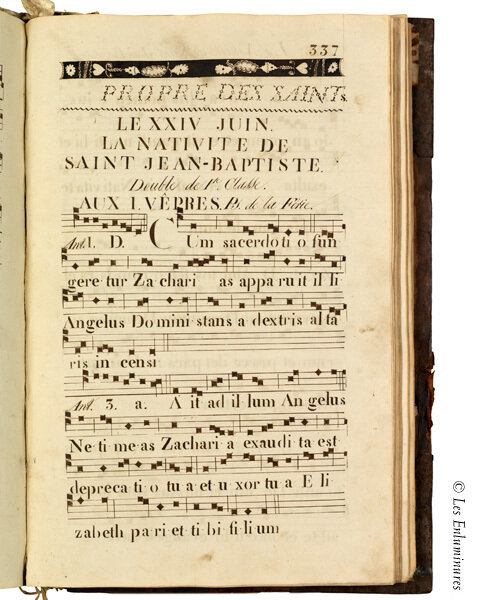 337
PROPRE DES SAINTS.
LE XXIV JUIN.
LA NATIVITE DE
SAINT JEAN-BAPTISTE.
Double de 1re Classe.
AUX I. VÊPRES. Ps. de la Férie.
Ant. 1. D. CUm sacerdoti o fun
gere tur Za chari as appa ru it il li
Angelus Do mi ni stans a dextris al ta
ris in censi
Ant. 3. a. A it ad il lum An gelus
Ne ti me as Zachari a exaudi ta est
depreca ti o tu a et u xor tu a E li
zabeth pa ri et ti bi fi li um
© Les Enluminures